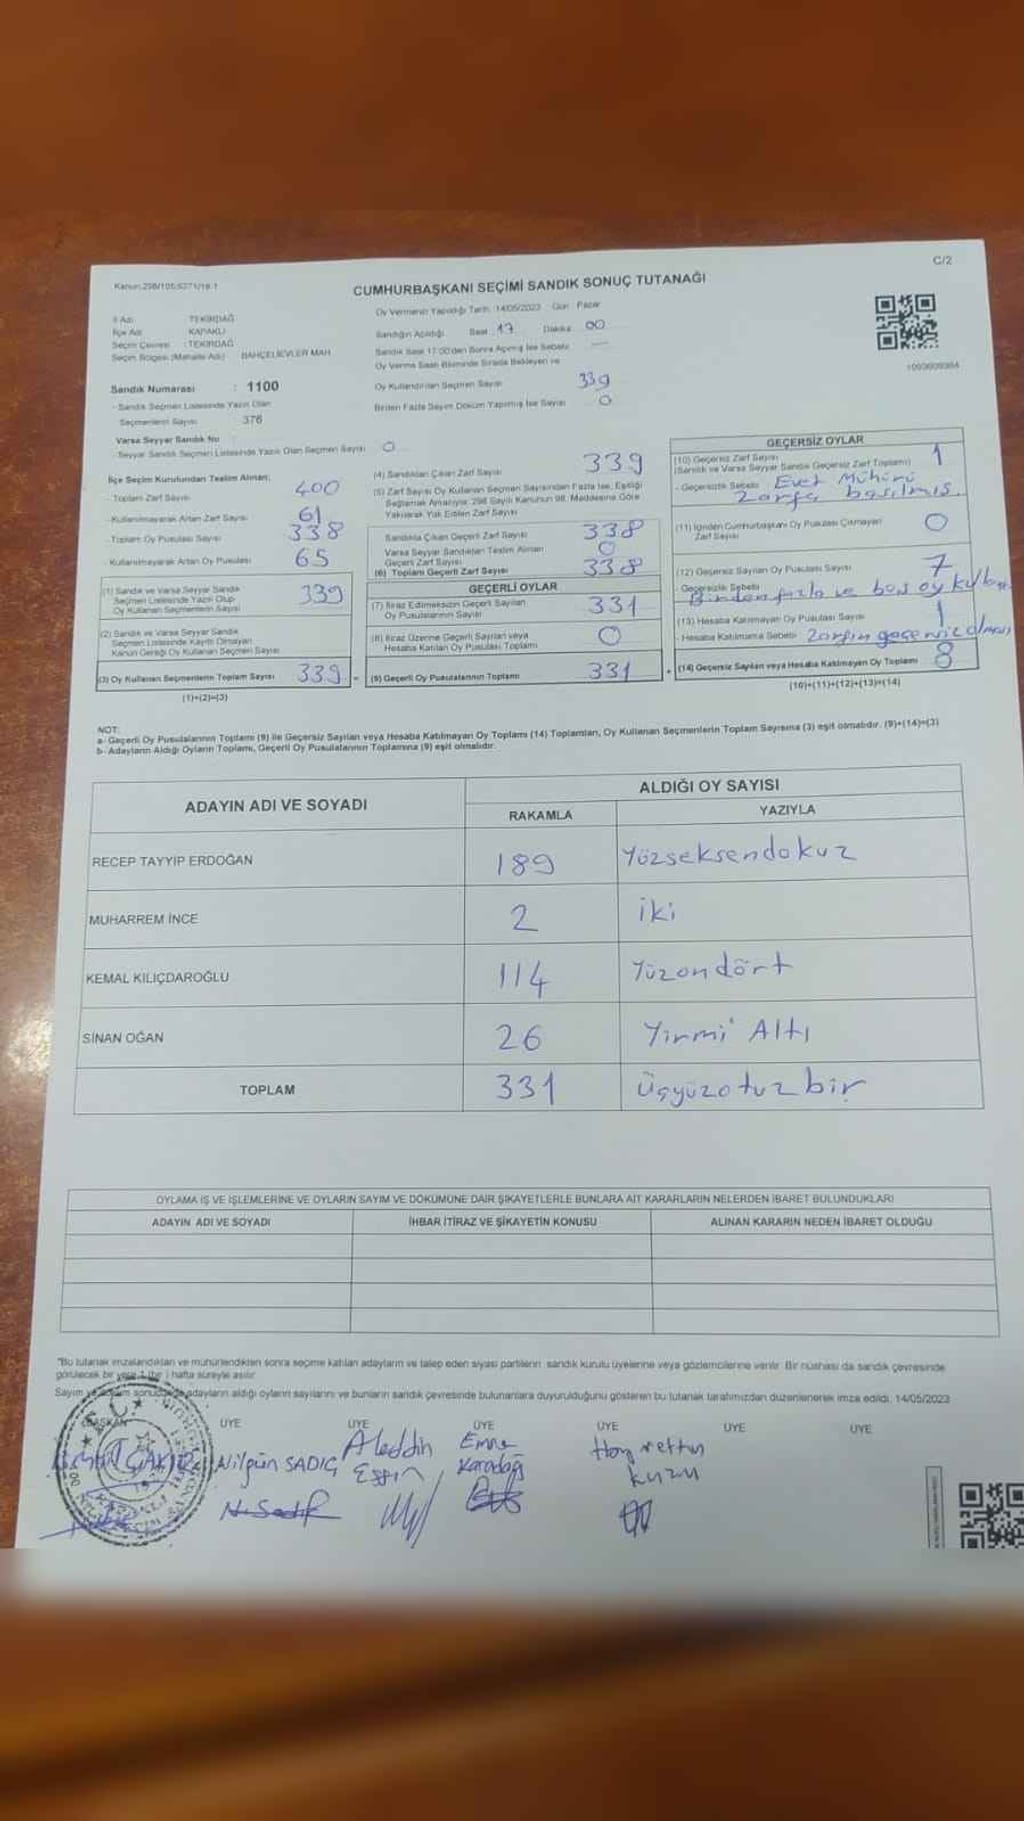 C/2
Kanun:298/105;6271/19.1
CUMHURBAŞKANI SEÇİMİ SANDIK SONUÇ TUTANAĞI
İl Adı : TEKİRDAĞ
İlçe Adı : KAPAKLI
Seçim Çevresi : TEKİRDAĞ
Seçim Bölgesi (Mahalle Adı) : BAHÇELİEVLER MAH.
Sandık Numarası : 1100
- Sandık Seçmen Listesinde Yazılı Olan
Seçmenlerin Sayısı 376
Oy Vermenin Yapıldığı Tarih: 14/05/2023 Gün : Pazar
Sandığın Açıldığı Saat 17 Dakika 00
Sandık Saat 17:00'den Sonra Açılmış İse Sebebi —
Oy Verme Saati Bitiminde Sırada Bekleyen ve
Oy Kullandırılan Seçmen Sayısı 339
Birden Fazla Sayım Döküm Yapılmış İse Sayısı 0
Varsa Seyyar Sandık No
- Seyyar Sandık Seçmen Listesinde Yazılı Olan Seçmen Sayısı 0
İlçe Seçim Kurulundan Teslim Alınan;
- Toplam Zarf Sayısı 400
- Kullanılmayarak Artan Zarf Sayısı 61
- Toplam Oy Pusulası Sayısı 338
- Kullanılmayarak Artan Oy Pusulası 65
(1) Sandık ve Varsa Seyyar Sandık
Seçmen Listesinde Yazılı Olup
Oy Kullanan Seçmenlerin Sayısı 339
(2) Sandık ve Varsa Seyyar Sandık
Seçmen Listesinde Kayıtlı Olmayan
Kanun Gereği Oy Kullanan Seçmen Sayısı
(3) Oy Kullanan Seçmenlerin Toplam Sayısı 339
(1)+(2)=(3)
(4) Sandıktan Çıkan Zarf Sayısı 339
(5) Zarf Sayısı Oy Kullanan Seçmen Sayısından Fazla İse, Eşitliği
Sağlamak Amacıyla, 298 Sayılı Kanunun 98. Maddesine Göre
Yakılarak Yok Edilen Zarf Sayısı
Sandıkta Çıkan Geçerli Zarf Sayısı 338
Varsa Seyyar Sandıktan Teslim Alınan
Geçerli Zarf Sayısı 0
(6) Toplam Geçerli Zarf Sayısı 338
GEÇERLİ OYLAR
(7) İtiraz Edilmeksizin Geçerli Sayılan
Oy Pusulalarının Sayısı 331
(8) İtiraz Üzerine Geçerli Sayılan veya
Hesaba Katılan Oy Pusulası Toplamı 0
(9) Geçerli Oy Pusulalarının Toplamı 331
GEÇERSİZ OYLAR
(10) Geçersiz Zarf Sayısı
(Sandık ve Varsa Seyyar Sandık Geçersiz Zarf Toplamı) 1
- Geçersizlik Sebebi Evet Mührü
zarfa basılmış.
(11) İçinden Cumhurbaşkanı Oy Pusulası Çıkmayan
Zarf Sayısı 0
(12) Geçersiz Sayılan Oy Pusulası Sayısı 7
- Geçersizlik Sebebi
Birden fazla ve boş oy
(13) Hesaba Katılmayan Oy Pusulası Sayısı 1
- Hesaba Katılmama Sebebi Zarfın geçersiz olması
(14) Geçersiz Sayılan veya Hesaba Katılmayan Oy Toplamı 8
(10)+(11)+(12)+(13)=(14)
NOT:
a- Geçerli Oy Pusulalarının Toplamı (9) ile Geçersiz Sayılan veya Hesaba Katılmayan Oy Toplamı (14) Toplamları, Oy Kullanan Seçmenlerin Toplam Sayısına (3) eşit olmalıdır. (9)+(14)=(3)
b- Adayların Aldığı Oyların Toplamı, Geçerli Oy Pusulalarının Toplamına (9) eşit olmalıdır.
ADAYIN ADI VE SOYADI
ALDIĞI OY SAYISI
RAKAMLA YAZIYLA
RECEP TAYYİP ERDOĞAN 189 Yüzseksendokuz
MUHARREM İNCE 2 iki
KEMAL KILIÇDAROĞLU 114 Yüzondört
SİNAN OĞAN 26 Yirmi Altı
TOPLAM 331 Üçyüzotuzbir
OYLAMA İŞ VE İŞLEMLERİNE VE OYLARIN SAYIM VE DÖKÜMÜNE DAİR ŞİKAYETLERLE BUNLARA AİT KARARLARIN NELERDEN İBARET BULUNDUKLARI
ADAYIN ADI VE SOYADI İHBAR İTİRAZ VE ŞİKAYETİN KONUSU ALINAN KARARIN NEDEN İBARET OLDUĞU
"Bu tutanak imzalandıktan ve mühürlendikten sonra seçime katılan adayların ve talep eden siyasi partilerin sandık kurulu üyelerine veya gözlemcilerine verilir. Bir nüshası da sandık çevresinde
görülecek bir yere 1 (bir) hafta süreyle asılır.
Sayım adayların aldığı oyların sayılarını ve bunların sandık çevresinde bulunanlara duyurulduğunu gösteren bu tutanak tarafımızdan düzenlenerek imza edildi. 14/05/2023
BAŞKAN ÜYE ÜYE ÜYE ÜYE ÜYE ÜYE
Nilgün SADIÇ Aleddin Emre Hayrettin
Karadağ Kuzu